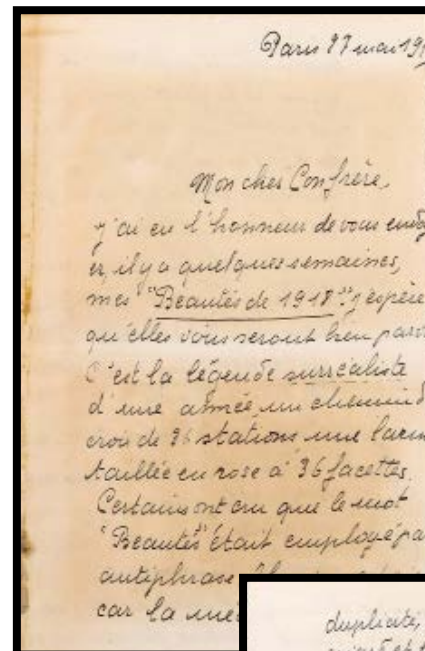 Paris 27 mai 19
Mon cher Confrère,
j'ai eu l'honneur de vous envoy
er, il y a quelques semaines,
mes "Beautés de 1918". J'espère
qu'elles vous seront bien parv
C'est la légende surréaliste
d'une année, un chemin d
croix de 36 stations une larm
taillée en rose à 36 facettes.
Certains ont cru que le mot
"Beautés" était employé pa
antiphrase
car la
duplicité,